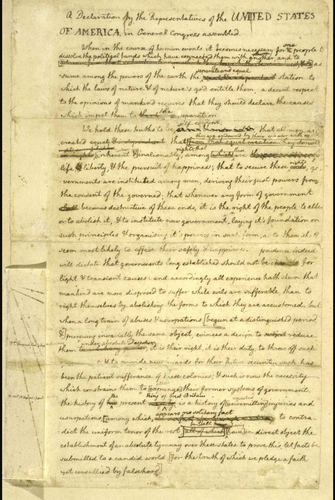 A Declaration by the Representatives of the UNITED STATES
OF AMERICA, in General Congress assembled.
When in the course of human events it becomes necessary for one people to
dissolve the political bands which have connected them with another, and to
assume among the powers of the earth the station to
which the laws of nature & of nature's god entitle them, a decent respect
to the opinions of mankind requires that they should declare the causes
which impel them to the separation
We hold these truths to be that all men are
created equal
life liberty, & the pursuit of happiness; that to secure these rights, go-
vernments are instituted among men, deriving their just powers from
the consent of the governed; that whenever any form of government
becomes destructive of these ends, it is the right of the people to alter
or to abolish it, & to institute new government, laying it's foundation on
such principles & organising it's powers in such form, as to them shall
seem most likely to effect their safety & happiness. prudence indeed
will dictate that governments long established should not be changed for
light & transient causes: and accordingly all experience hath shewn that
mankind are more disposed to suffer while evils are sufferable, than to
right themselves by abolishing the forms to which they are accustomed. but
when a long train of abuses & usurpations [begun at a distinguished period
& pursuing invariably the same object, evinces a design to reduce
under absolute Despotism
them it is their right, it is their duty, to throw off such
& to provide new guards for their future security. such has
been the patient sufferance of these colonies; & such is now the necessity
which constrains them to [expunge] their former systems of government.
King of Great Britain
the history of present is a history of injuries and
usurpations, [among which,
appears no solitary fact
to contra-
dict the uniform tenor of the rest, in direct object the
establishment of an absolute tyranny over these states. to prove this, let facts be
submitted to a candid world [for the truth of which we pledge a faith
yet unsullied by falsehood]